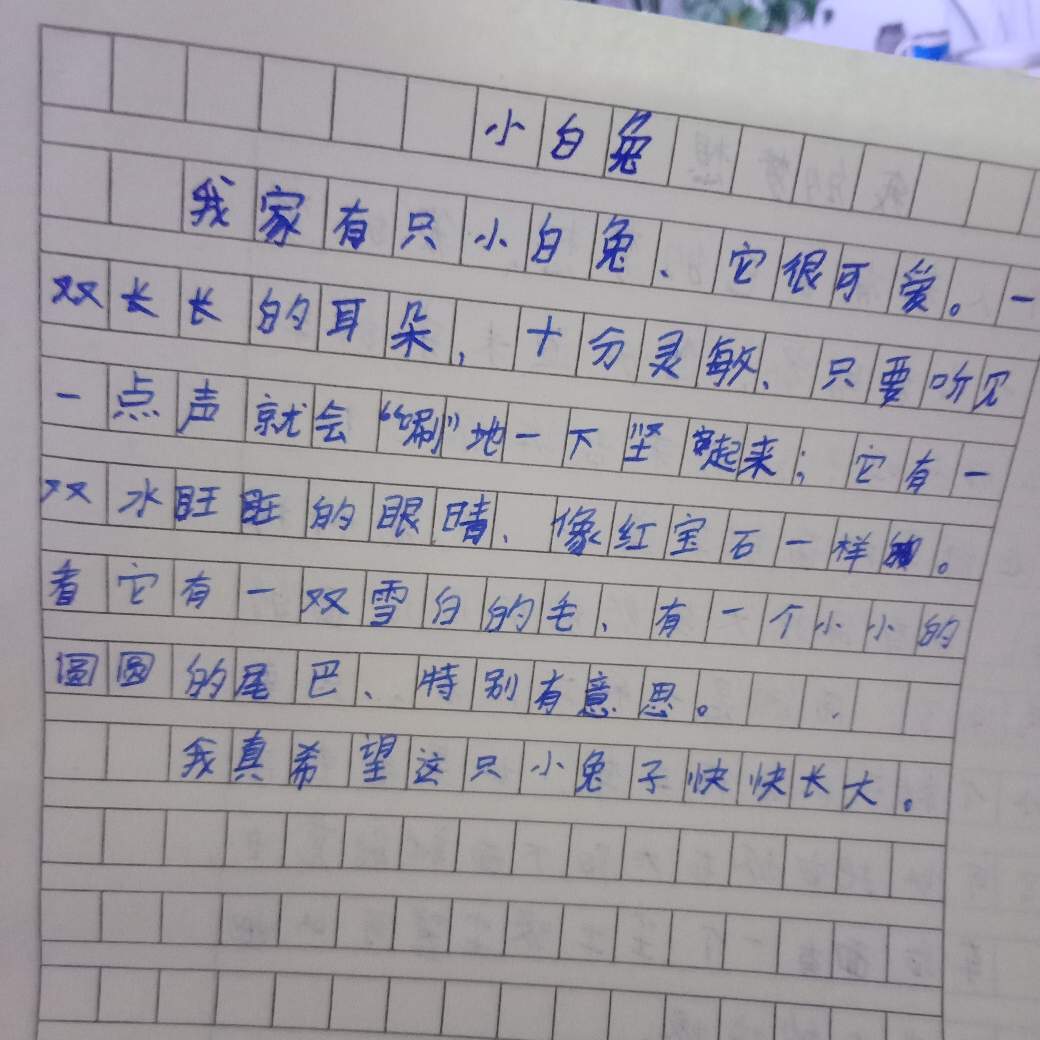 小白兔
我家有只小白兔、它很可爱。一
双长长的耳朵，十分灵敏、只要听见
一点声就会“唰”地一下坚起来；它有一
双水旺旺的眼晴、像红宝石一样。
看它有一双雪白的毛、有一个小小的
圆圆的尾巴、特别有意思。
我真希望这只小兔子快快长大。